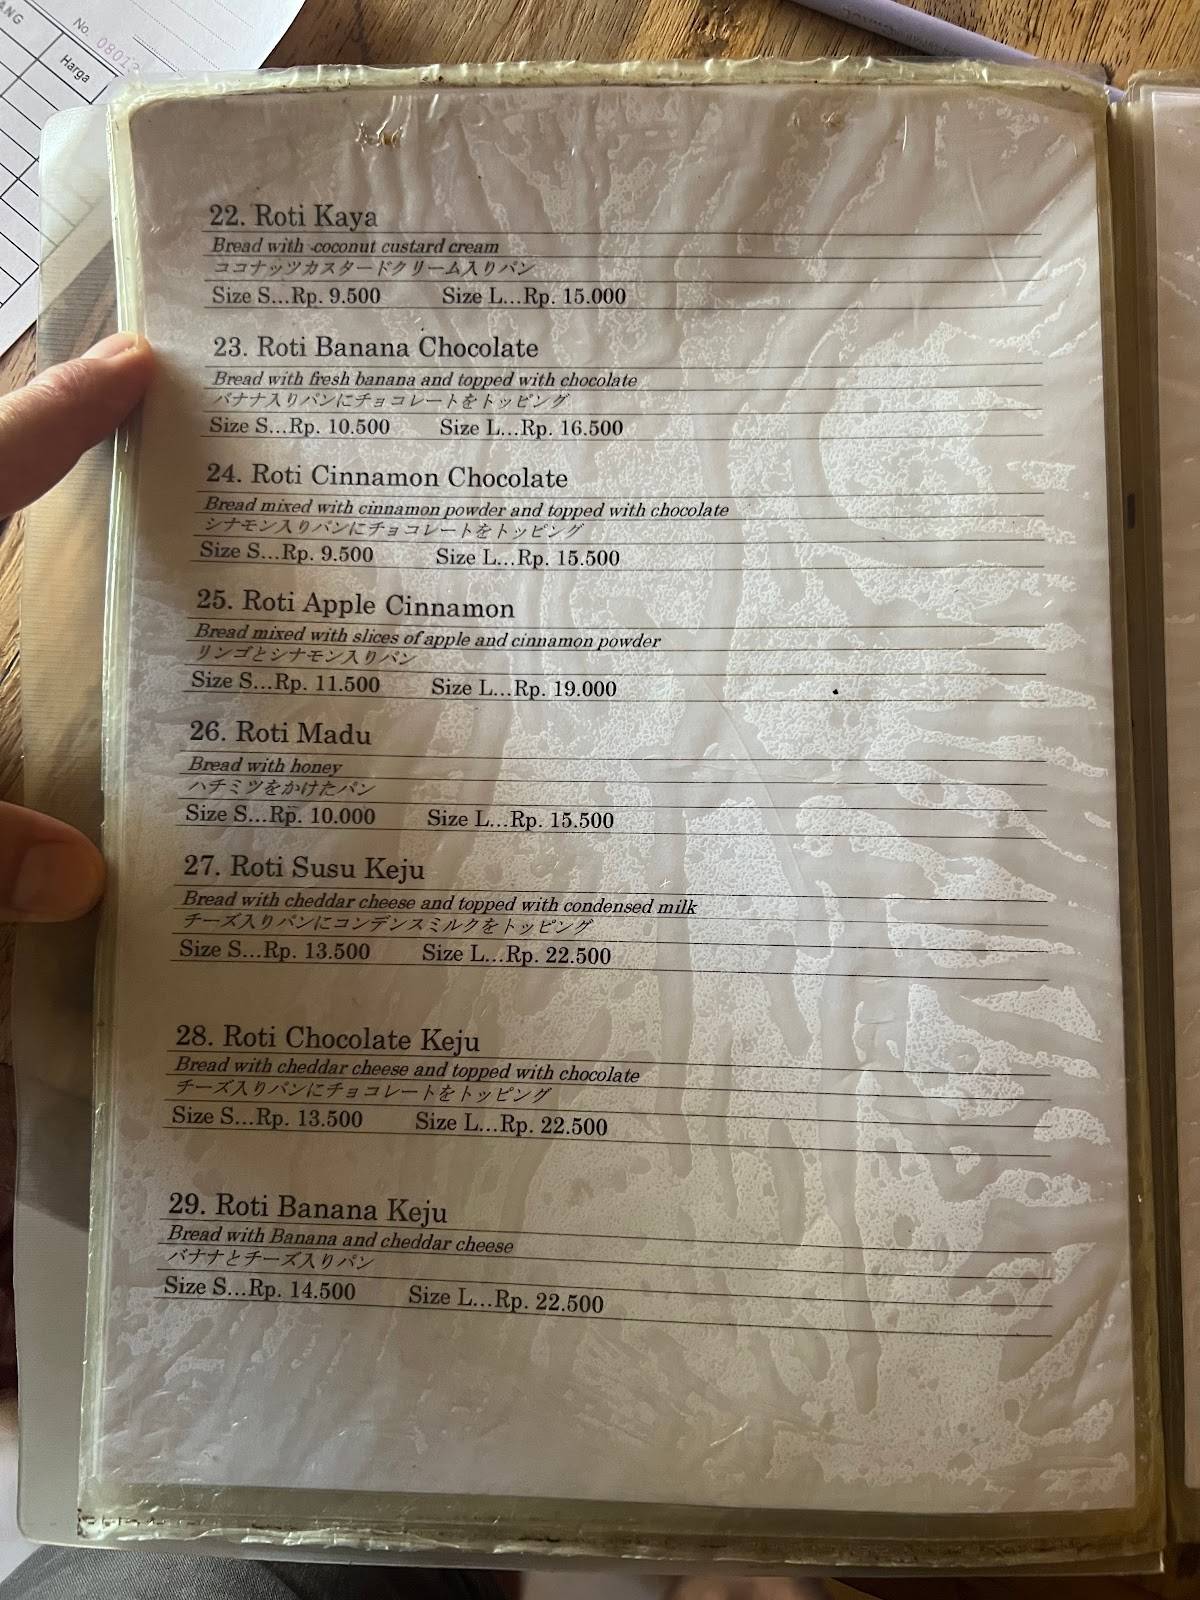 ANG
No. 0801
Harga
22. Roti Kaya
Bread with coconut custard cream
ココナッツカスタードクリーム入りパン
Size S...Rp. 9.500 Size L...Rp. 15.000
23. Roti Banana Chocolate
Bread with fresh banana and topped with chocolate
バナナ入りパンにチョコレートをトッピング
Size S...Rp. 10.500 Size L...Rp. 16.500
24. Roti Cinnamon Chocolate
Bread mixed with cinnamon powder and topped with chocolate
シナモン入りパンにチョコレートをトッピング
Size S...Rp. 9.500 Size L...Rp. 15.500
25. Roti Apple Cinnamon
Bread mixed with slices of apple and cinnamon powder
リンゴとシナモン入りパン
Size S...Rp. 11.500 Size L...Rp. 19.000
26. Roti Madu
Bread with honey
ハチミツをかけたパン
Size S...Rp. 10.000 Size L...Rp. 15.500
27. Roti Susu Keju
Bread with cheddar cheese and topped with condensed milk
チーズ入りパンにコンデンスミルクをトッピング
Size S...Rp. 13.500 Size L...Rp. 22.500
28. Roti Chocolate Keju
Bread with cheddar cheese and topped with chocolate
チーズ入りパンにチョコレートをトッピング
Size S...Rp. 13.500 Size L...Rp. 22.500
29. Roti Banana Keju
Bread with Banana and cheddar cheese
バナナとチーズ入りパン
Size S...Rp. 14.500 Size L...Rp. 22.500